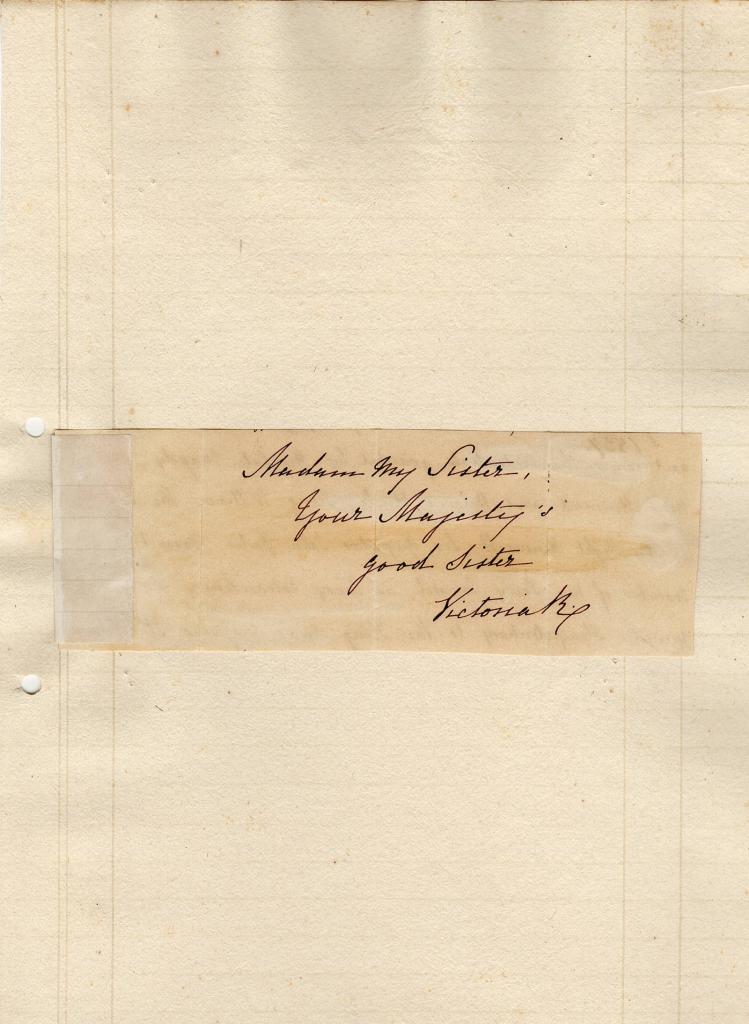 Madam My Sister,
Your Majesty's
good Sister
Victoria R